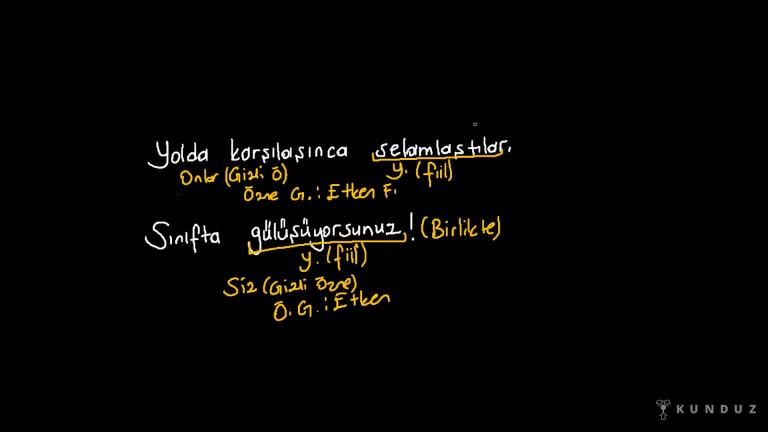 Yolda karşılaşınca selamlaştılar.
Onlar (Gizli Ö) y. (fiil)
Özne G. : Etken F.
Sınıfta gülüşüyorsunuz! (Birlikte)
y. (fiil)
Siz (Gizli Özne)
Ö. G. : Etken
KUNDUZ